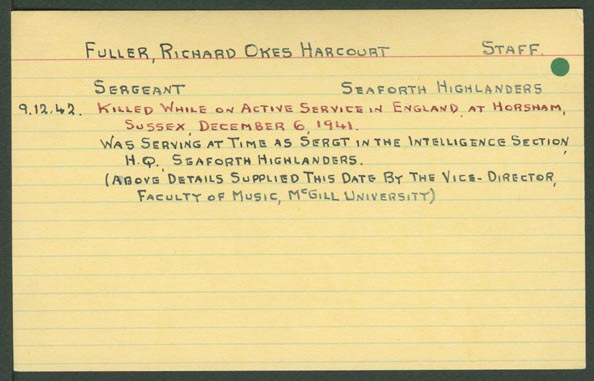 FULLER, RICHARD OKES HARCOURT STAFF.
SERGEANT SEAFORTH HIGHLANDERS
9.12.42. KILLED WHILE ON ACTIVE SERVICE IN ENGLAND, AT HORSHAM,
SUSSEX, DECEMBER 6, 1941.
WAS SERVING AT TIME AS SERGT IN THE INTELLIGENCE SECTION,
H.Q. SEAFORTH HIGHLANDERS.
(ABOVE DETAILS SUPPLIED THIS DATE BY THE VICE-DIRECTOR,
FACULTY OF MUSIC, McGILL UNIVERSITY)